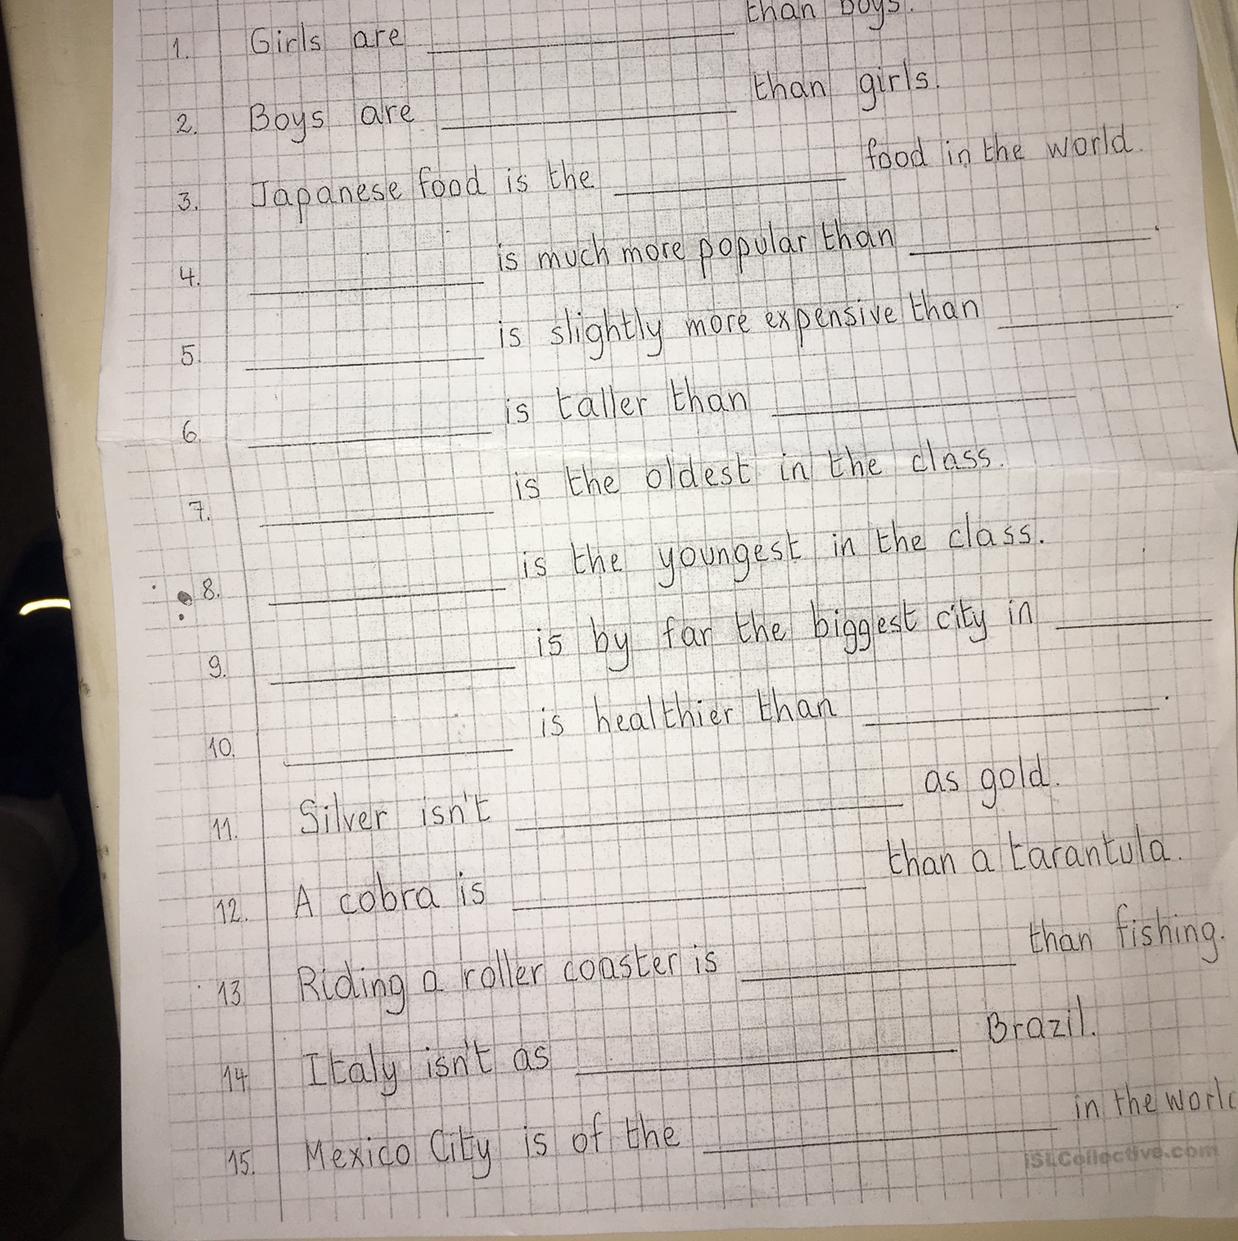 1. Girls are ____________ than boys.
2. Boys are ____________ than girls.
3. Japanese food is the ____________ food in the world.
4. ____________ is much more popular than ____________.
5. ____________ is slightly more expensive than ____________.
6. ____________ is taller than ____________
7. ____________ is the oldest in the class.
8. ____________ is the youngest in the class.
9. ____________ is by far the biggest city in ____________
10. ____________ is healthier than ____________.
11. Silver isn't ____________ as gold.
12. A cobra is ____________ than a tarantula.
13 Riding a roller coaster is ____________ than fishing.
14 Italy isn't as ____________ Brazil.
15. Mexico City is of the ____________ in the world
iSLCollective.com